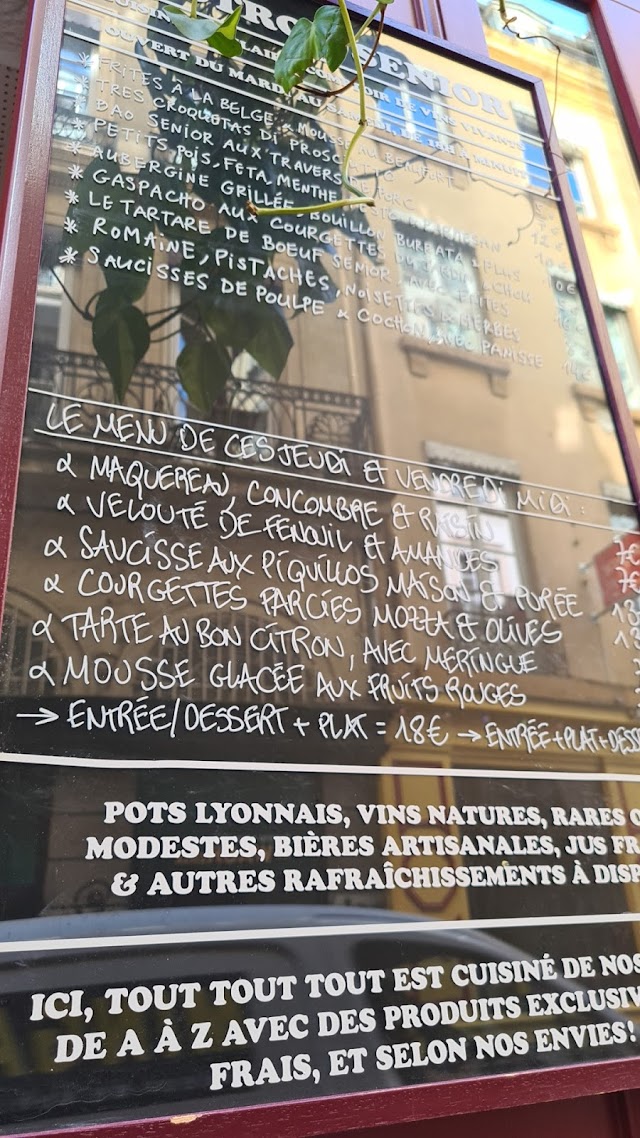 SENIOR
COMPTOIR DE VINS VIVANTS
OUVERT DU MARDI AU SAMEDI, DE À MINUIT
* FRITES À LA BELGE, MOUSSE AU BEAUFORT
* TRES CROQUETAS DI PROSCIUTTO
* BAO SENIOR AUX TRAVERS PORC
* PETITS POIS, FETA, MENTHE
* AUBERGINE GRILLÉE, BOUILLON BURRATA
* GASPACHO AUX COURGETTES DU
* LE TARTARE DE BOEUF SENIOR, AVEC FRITES
* ROMAINE, PISTACHES, NOISETTES & HERBES
* SAUCISSES DE POULPE & COCHON, AVEC PANISSE
LE MENU DE CES JEUDI ET VENDREDI MIDI :
MAQUEREAU, CONCOMBRE & RAISIN 7€
VELOUTÉ DE FENOUIL ET AMANDES 7€
SAUCISSE AUX PIQUILLOS MAISON & PURÉE
COURGETTES FARCIES MOZZA & OLIVES
TARTE AU BON CITRON, AVEC MERINGUE
MOUSSE GLACÉE AUX FRUITS ROUGES
→ ENTRÉE/DESSERT + PLAT = 18€ → ENTRÉE+PLAT+DESSE
POTS LYONNAIS, VINS NATURES, RARES O
MODESTES, BIÈRES ARTISANALES, JUS FR
& AUTRES RAFRAÎCHISSEMENTS À DISP
ICI, TOUT TOUT TOUT EST CUISINÉ DE NOS
DE A À Z AVEC DES PRODUITS EXCLUSIV
FRAIS, ET SELON NOS ENVIES!